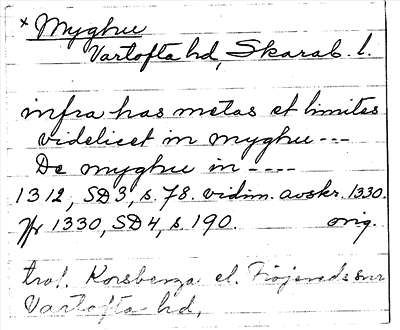 × Myghu
Vartofta hd, Skarab. l.
infra has metas et limites
videlicet in myghu ---
De myghu in ----
1312, SD3, s. 78. vidim. avskr. 1330.
Jfr 1330, SD4, s. 190. orig.
trol. Korsberga el.
Vartofta hd,